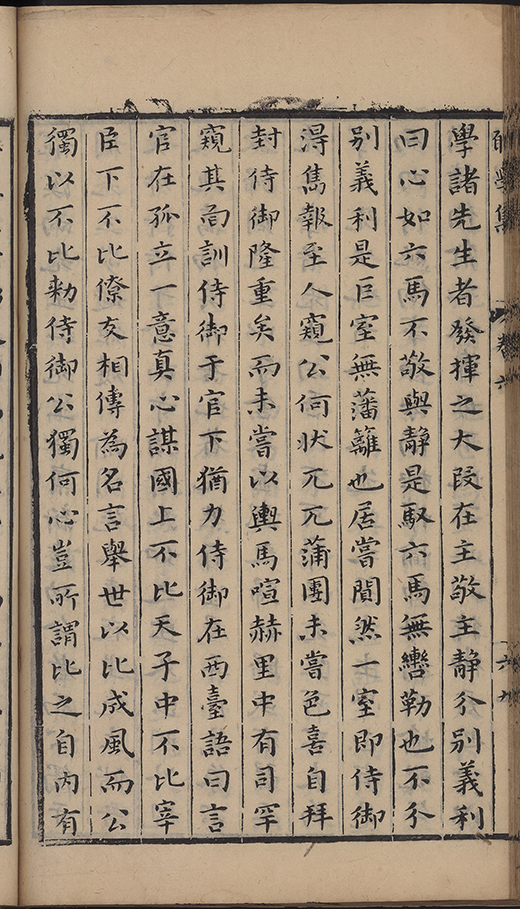 集
卷六
六九
學諸先生者發揮之大段在主敬主靜分別義利
曰心如六馬不敬與靜是馭六馬無轡勒也不分
別義利是巨室無藩籬也居嘗闇然一室即侍御
淂雋報至人窺公何狀兀兀蒲團未嘗色喜自拜
封侍御隆重矣而未嘗以輿馬喧赫里中有司罕
窺其面訓侍御于官下猶力侍御在西臺語曰言
官在孤立一意真心謀國上不比天子中不比宰
臣下不比僚友相傳為名言舉世以比成風而公
獨以不比勑侍御公獨何心豈所謂比之自內有